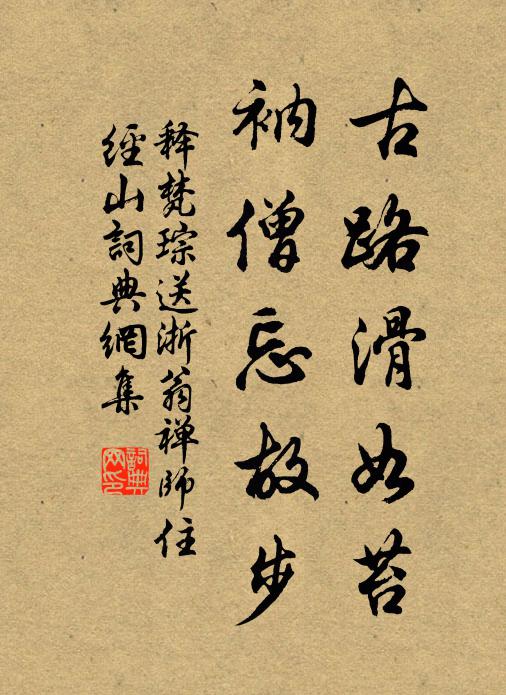 古路滑如苔
衲僧忘故步
释梵琮送浙翁禅師住
經山詞典網集
詞典网印